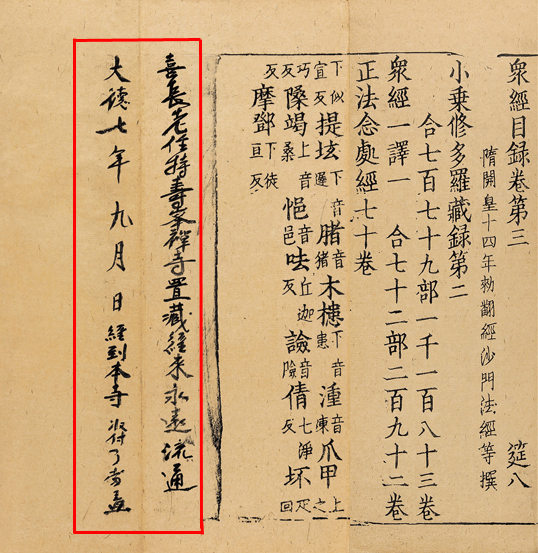 衆經目録卷第三 筵八
隋開皇十四年勅翻經沙門法經等撰
小乗修多羅藏録第二
合七百七十九部一千一百八十三卷
衆經一譯一 合七十二部二百九十二卷
正法念處經七十卷
下音䐗音猪木槵下音患湩音東爪甲上之
下似宣反提坺下音邊悒音邑呿丘迦反譣音險倩七淨反坏疋回
巧反嗓上桑竭
反摩鄧下徒亘反
喜長老住持壽峯禅寺置藏經来永遠流通
大德七年九月日經到本寺收付了當